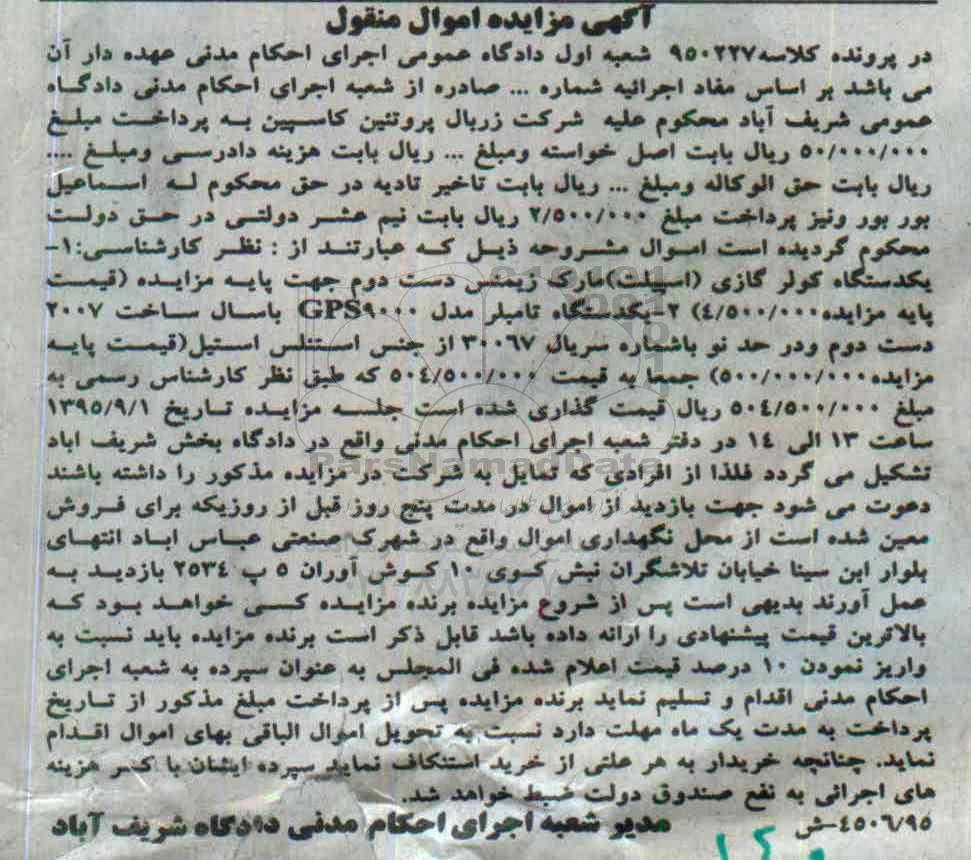 آگهی مزایده اموال منقول
در پرونده کلاسه ۹۵۰۲۲۷ شعبه اول دادگاه عمومی اجرای احکام مدنی عهده دار آن
می باشد بر اساس مفاد اجرائیه شماره ... صادره از شعبه اجرای احکام مدنی دادگاه
عمومی شریف آباد محکوم علیه شرکت زربال پروتئین کاسپین به پرداخت مبلغ
۵۰/۰۰۰/۰۰۰ ریال بابت اصل خواسته ومبلغ ... ریال بابت هزینه دادرسی ومبلغ ....
ریال بابت حق الوکاله ومبلغ ... ریال بابت تاخیر تادیه در حق محکوم له اسماعیل
بور بور ونیز پرداخت مبلغ ۲/۵۰۰/۰۰۰ ریال بابت نیم عشر دولتی در حق دولت
محکوم گردیده است اموال مشروحه ذیل که عبارتند از : نظر کارشناسی:۱-
یکدستگاه کولر گازی (اسپیلت)مارک زیمنس دست دوم جهت پایه مزایده (قیمت
پایه مزایده۴/۵۰۰/۰۰۰) ۲-یکدستگاه تامبلر مدل GPS۹۰۰۰ باسال ساخت ۲۰۰۷
دست دوم ودر حد نو باشماره سریال ۳۰۰۶۷ از جنس استنلس استیل(قیمت پایه
مزایده۵۰۰/۰۰۰/۰۰۰) جمعا به قیمت ۵۰۴/۵۰۰/۰۰۰ که طبق نظر کارشناس رسمی به
مبلغ ۵۰۴/۵۰۰/۰۰۰ ریال قیمت گذاری شده است جلسه مزایده تاریخ ۱۳۹۵/۹/۱
ساعت ۱۳ الی ۱۴ در دفتر شعبه اجرای احکام مدنی واقع در دادگاه بخش شریف اباد
تشکیل می گردد فلذا از افرادی که تمایل به شرکت در مزایده مذکور را داشته باشند
دعوت می شود جهت بازدید از اموال در مدت پنج روز قبل از روزیکه برای فروش
معین شده است از محل نگهداری اموال واقع در شهرک صنعتی عباس اباد انتهای
بلوار ابن سینا خیابان تلاشگران نبش کوی ۱۰ کوش آوران ۵ پ ۲۵۳۴ بازدید به
عمل آورند بدیهی است پس از شروع مزایده برنده مزایده کسی خواهد بود که
بالاترین قیمت پیشنهادی را ارائه داده باشد قابل ذکر است برنده مزایده باید نسبت به
واریز نمودن ۱۰ درصد قیمت اعلام شده فی المجلس به عنوان سپرده به شعبه اجرای
احکام مدنی اقدام و تسلیم نماید برنده مزایده پس از پرداخت مبلغ مذکور از تاریخ
پرداخت به مدت یک ماه مهلت دارد نسبت به تحویل اموال الباقی بهای اموال اقدام
نماید. چنانچه خریدار به هر علتی از خرید استنکاف نماید سپرده ایشان با کسر هزینه
های اجرائی به نفع صندوق دولت ضبط خواهد شد.
۴۵۰۶/۹۵-ش مدیر شعبه اجرای احکام مدنی دادگاه شریف آباد
ParsNamadData